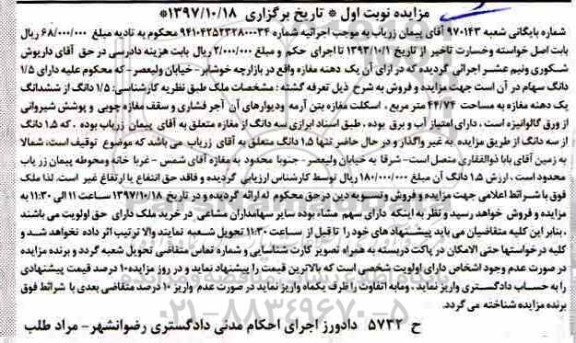 مزایده نوبت اول * تاریخ برگزاری ۱۳۹۷/۱۰/۱۸*
شماره بایگانی شعبه ۹۷۰۱۴۳ آقای پیمان زریاب به موجب اجرائیه شماره ۹۴۱۰۴۲۵۲۳۲۸۰۰۰۳۴ محکوم به تادیه مبلغ ۶۸/۰۰۰/۰۰۰ ریال
بابت اصل خواسته وخسارت تاخیر از تاریخ ۱۳۹۳/۱۰/۱ تا اجرای حکم و مبلغ ۲/۰۰۰/۰۰۰ ریال بابت هزینه دادرسی در حق آقای داریوش
شکوری ونیم عشر اجرائی گردیده که در ازای آن یک دهنه مغازه واقع در بازارچه خوشابر- خیابان ولیعصر- که محکوم علیه دارای ۱/۵
دانگ سهام در آن است جهت مزایده و فروش به شرح ذیل تعرفه گشته : مشخصات ملک طبق نظریه کارشناسی: ۱/۵ دانگ از ششدانگ
یک دهنه مغازه به مساحت ۴۴/۷۴ متر مربع ، اسکلت مغازه بتن آرمه ودیوارهای آن آجر فشاری و سقف مغازه چوبی و پوشش شیروانی
از ورق گالوانیزه است ، دارای امتیاز آب و برق بوده . طبق اسناد ابرازی سه دانگ از مغازه متعلق به آقای پیمان زریاب بوده . که ۱.۵ دانگ
از سه دانگ از طریق مزایده به غیر واگذار و در حال حاضر تنها ۱.۵ دانگ متعلق به آقای زریاب می باشد که موضوع توقیف است، شمالا
به زمین آقای بابا ذوالفقاری متصل است- شرقا به خیابان ولیعصر- جنوبا محدود به مغازه آقای شمس - غربا خانه ومحوطه پیمان زریاب
محدود است . ارزش ۱.۵ دانگ آن مبلغ ۱۸۰/۰۰۰/۰۰۰ ریال توسط کارشناس ارزیابی گردیده و فاقد حق انتفاع یا ارتفاع غیر است. لذا ملک
فوق با شرائط اعلامی جهت مزایده و فروش وتسویه دین درحق محکوم له ارائه گردیده و در تاریخ ۱۳۹۷/۱۰/۱۸ ساعت ۱۱ الی ۱۱:۳۰ به
مزایده و فروش خواهد رسید و نظر به اینکه دارای سهم مشاء بوده سایر سهامداران مشاعی در خرید ملک دارای حق اولویت می باشند
، بنابر این کلیه متقاضیان می باید پیشنهادهای خود را تا قبل از ساعت ۱۱:۳۰ تحویل شعبه نمایند والا ترتیب اثر داده نخواهد شد و
کلیه درخواستها حتی الامکان در پاکت دربسته به همراه تصویر کارت شناسایی و شماره تماس متقاضی تحویل شعبه گردد و برنده مزایده
در صورت عدم وجود اشخاص دارای اولویت شخصی است که بالاترین قیمت را پیشنهاد نماید و در روز مزایده ۱۰ درصد قیمت پیشنهادی
را به حساب دادگستری واریز نماید. ومابه التفاوت را ظرف یکماه واریز نماید در صورت عدم واریز ۱۰ درصد متقاضی بعدی با شرائط فوق
برنده مزایده شناخته می گردد.
ح ۵۷۳۲ دادورز اجرای احکام مدنی دادگستری رضوانشهر- مراد طلب
۰۲۱-۸۸۳۴۹۶۷۰-۵